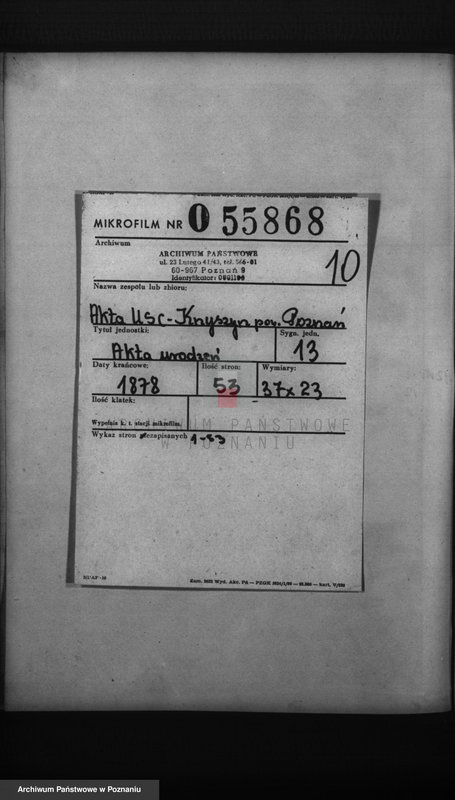 MIKROFILM NR 0 55868
Archiwum
ARCHIWUM PAŃSTWOWE
ul. 23 Lutego 41/43, tel. 566-01
60-967 Poznań 9
Identyfikator: 0001106
10
Nazwa zespołu lub zbioru:
Akta USC - Knyszyn pow. Poznań
Tytuł jednostki: Sygn. jedn.
Akta urodzeń 13
Daty krańcowe: Ilość stron: Wymiary:
1878 53 37 x 23
Ilość klatek: -
Wypełnia k. t. stacji mikrofilm.
ARCHIWUM PAŃSTWOWE
W POZNANIU
Wykaz stron niezapisanych 1-53
Wyd. Akc. PA — PZGK
Archiwum Państwowe w Poznaniu